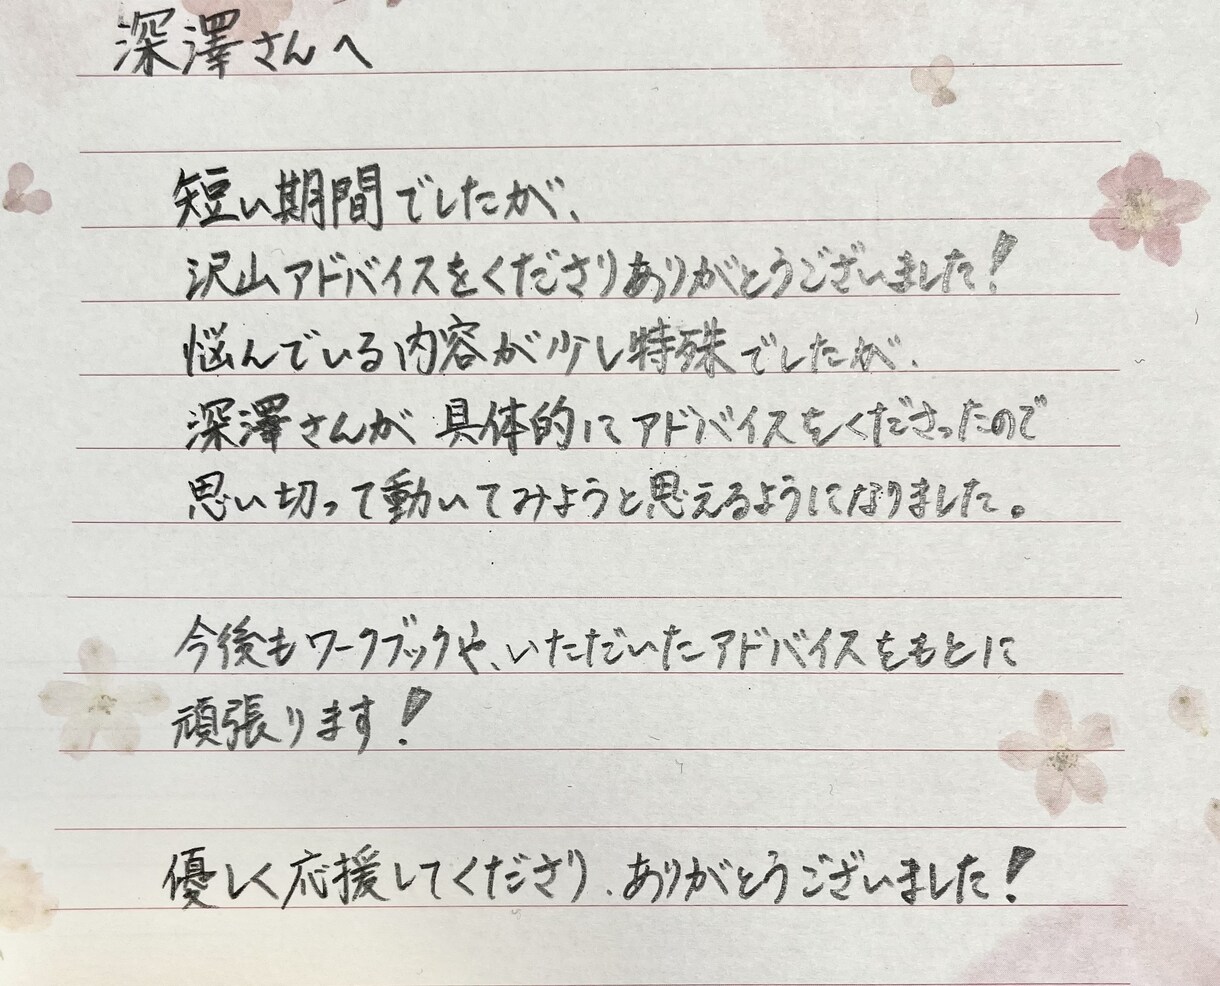 深澤さんへ
短い期間でしたが、
沢山アドバイスをくださりありがとうございました!
悩んでいる内容が少し特殊でしたが、
深澤さんが具体的にアドバイスをくださったので
思い切って動いてみようと思えるようになりました。
今後もワークブックや、いただいたアドバイスをもとに
頑張ります!
優しく応援してくださり、ありがとうございました!